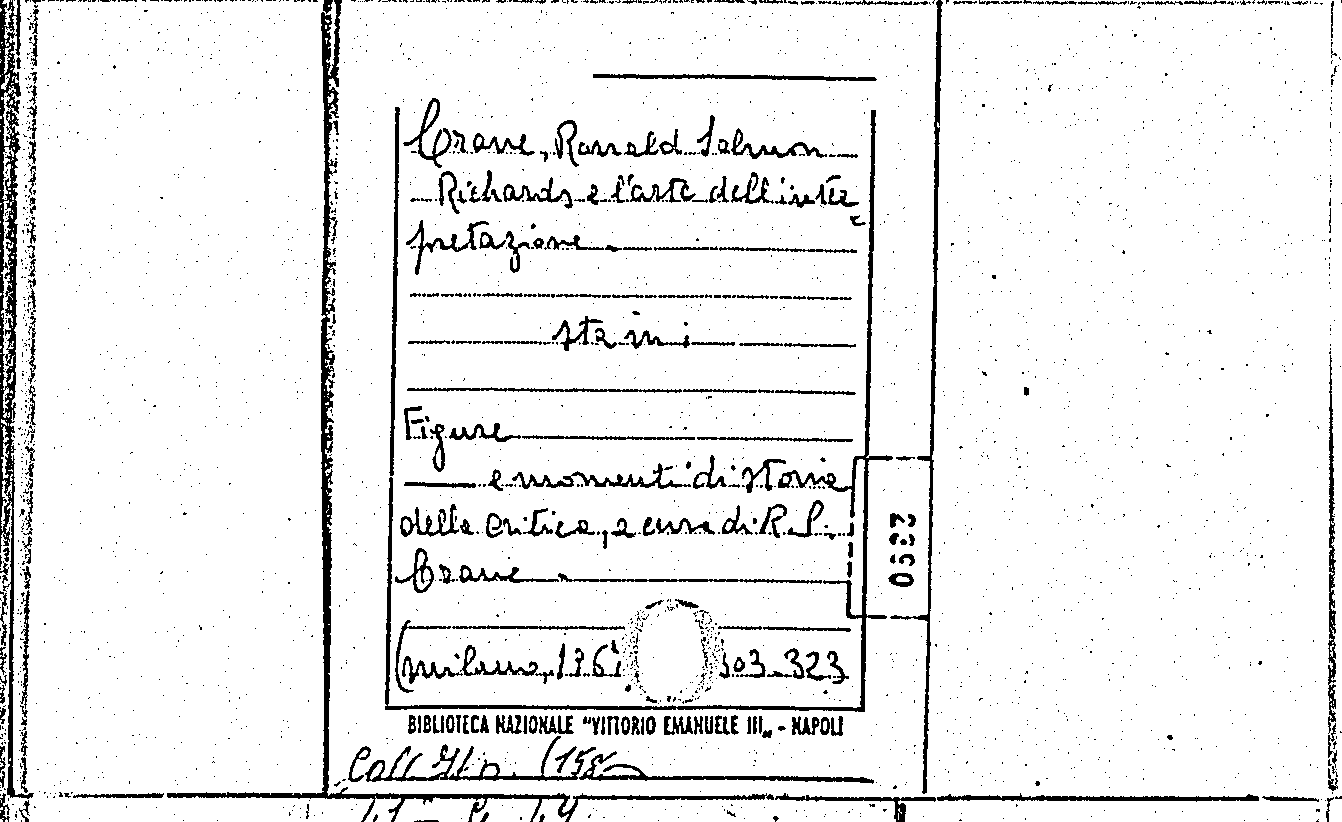 Crane, Ronald Salmon
Richards e l'arte dell'inter=
pretazione.
sta in:
Figure
e momenti di storia
della critica, a cura di R. S.
Crane.
(Milano, 196 303-323
2390
BIBLIOTECA NAZIONALE "VITTORIO EMANUELE III„ - NAPOLI
Coll. It. n. (158